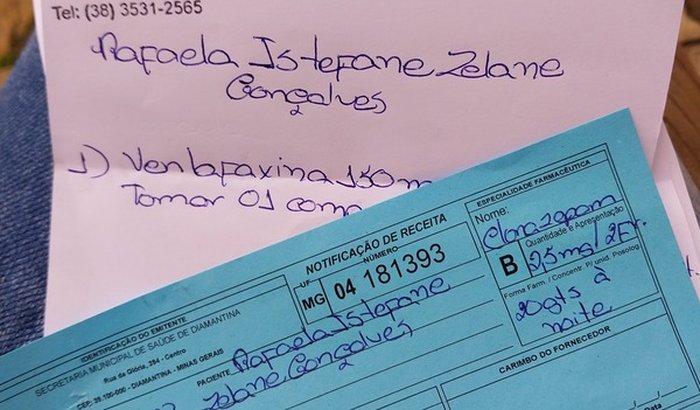 Tel: (38) 3531-2565
Rafaela Istefane Zelane
Gonçalves
1) Venlafaxina 150m
Tomar 01 comp
NOTIFICAÇÃO DE RECEITA
UF
NÚMERO
MG 04 181393
ESPECIALIDADE FARMACÊUTICA
Nome:
Clonazepam
Quantidade e Apresentação
B 2,5mg/2Fr.
Forma Farm. / Concentr. P/ unid. Posolog
20gts à
noite
IDENTIFICAÇÃO DO EMITENTE
SECRETARIA MUNICIPAL DE SAÚDE DE DIAMANTINA
Rua da Glória, 394 - Centro
CEP: 39.100-000 - DIAMANTINA - MINAS GERAIS
PACIENTE Rafaela Istefane
Zelane Gonçalves
CARIMBO DO FORNECEDOR
Data